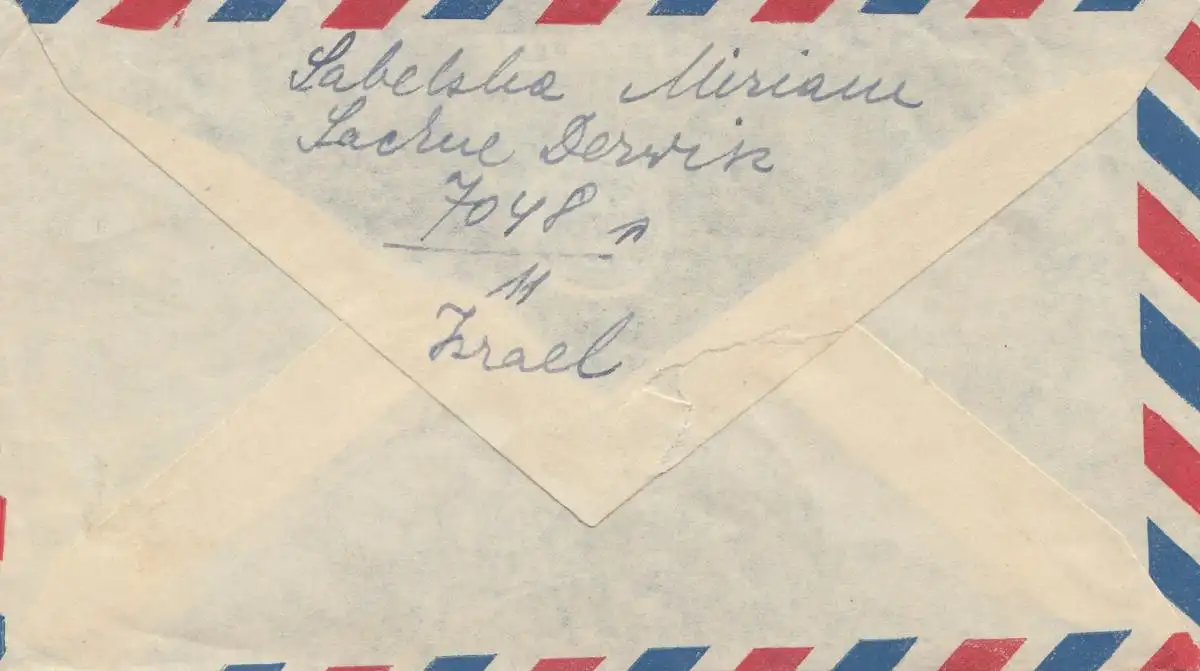 Sabelska Miriam
Sachne Derwisz
7048 A
11
Israel